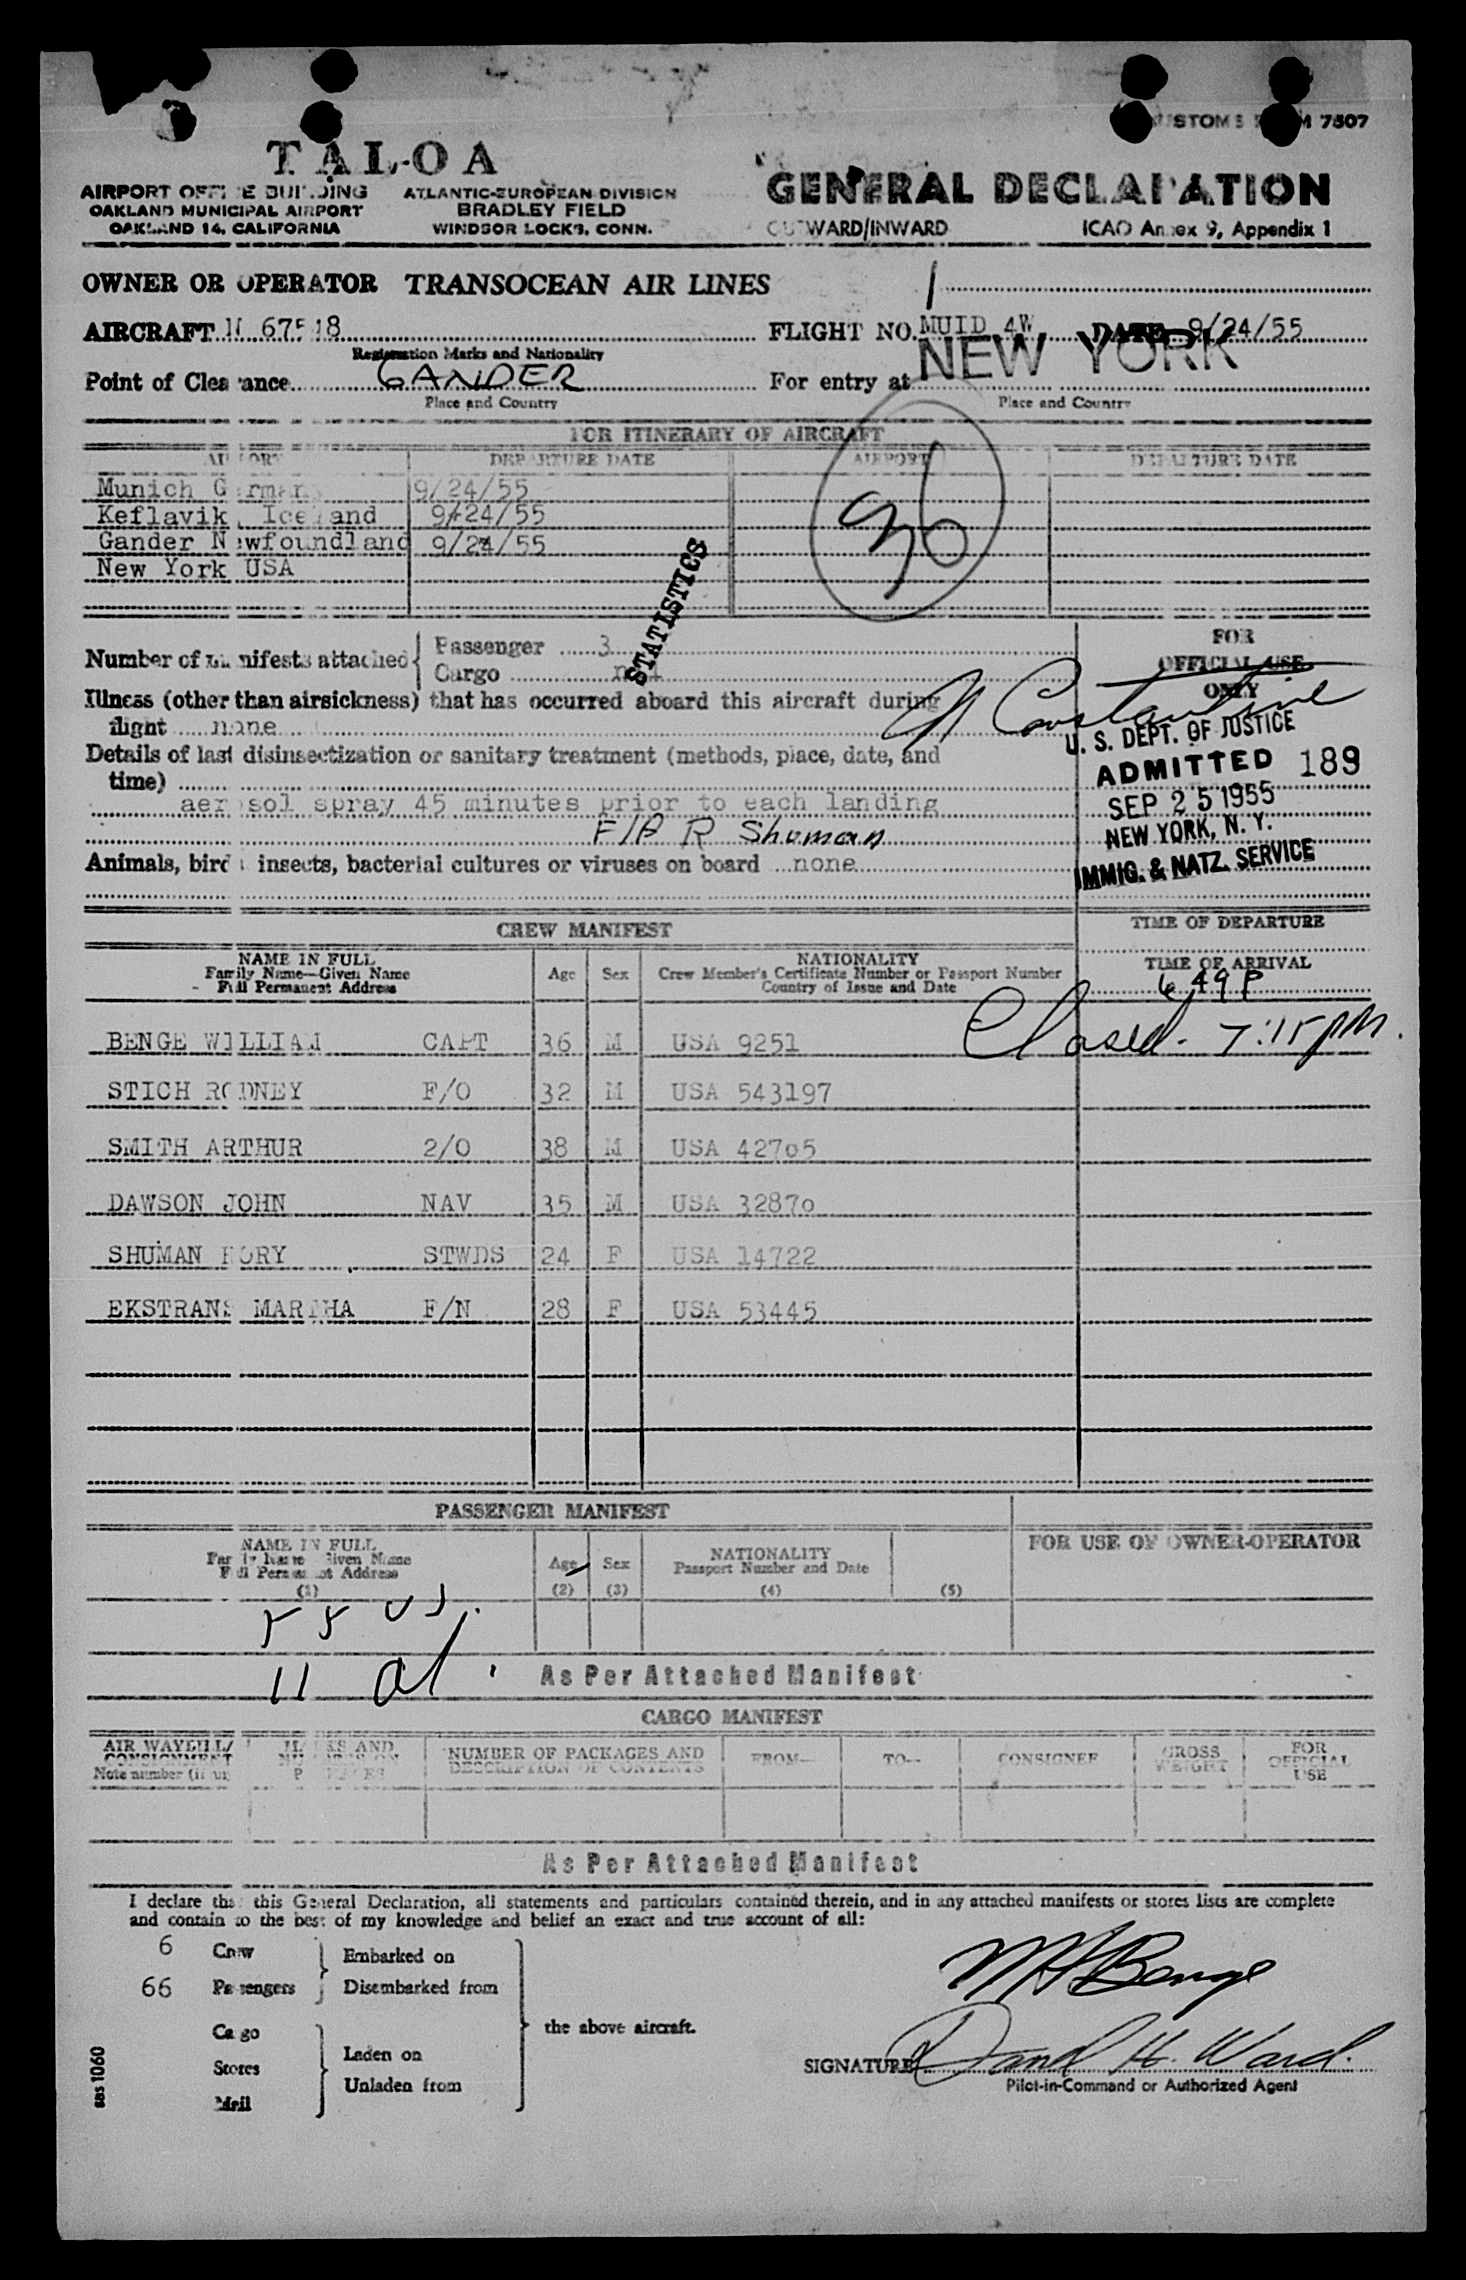 CUSTOMS FORM 7507
TALOA
AIRPORT OFFICE BUILDING
OAKLAND MUNICIPAL AIRPORT
OAKLAND 14, CALIFORNIA
ATLANTIC-EUROPEAN DIVISION
BRADLEY FIELD
WINDSOR LOCKS, CONN.
GENERAL DECLARATION
OUTWARD/INWARD ICAO Annex 9, Appendix 1
OWNER OR OPERATOR TRANSOCEAN AIR LINES
AIRCRAFT N 67518 FLIGHT NO. MUID 4W DATE 9/24/55
Registration Marks and Nationality
Point of Clearance GANDER For entry at NEW YORK
Place and Country Place and Country
FOR ITINERARY OF AIRCRAFT
AIRPORT DEPARTURE DATE AIRPORT DEPARTURE DATE
Munich Germany 9/24/55
Keflavik, Iceland 9/24/55
Gander Newfoundland 9/24/55
New York USA
36
STATISTICS
Number of manifests attached Passenger 3
Cargo
Illness (other than airsickness) that has occurred aboard this aircraft during
flight none
Details of last disinsectization or sanitary treatment (methods, place, date, and
time)
aerosol spray 45 minutes prior to each landing
F/A R Shuman
Animals, birds, insects, bacterial cultures or viruses on board none
FOR
OFFICIAL USE
ONLY
N Constantine
U. S. DEPT. OF JUSTICE
ADMITTED 189
SEP 25 1955
NEW YORK, N. Y.
IMMIG. & NATZ. SERVICE
TIME OF DEPARTURE
TIME OF ARRIVAL
6 49 P
Closed. 7:15 pm.
CREW MANIFEST
NAME IN FULL
Family Name—Given Name
Full Permanent Address
Age Sex
NATIONALITY
Crew Member's Certificate Number or Passport Number
Country of Issue and Date
BENGE WILLIAM CAPT 36 M USA 9251
STICH RODNEY F/O 32 M USA 543197
SMITH ARTHUR 2/O 38 M USA 42705
DAWSON JOHN NAV 35 M USA 32870
SHUMAN RORY STWDS 24 F USA 14722
EKSTRANS MARTHA F/N 28 F USA 53445
PASSENGER MANIFEST
NAME IN FULL
Family Name Given Name
Full Permanent Address
(1)
Age
(2)
Sex
(3)
NATIONALITY
Passport Number and Date
(4)
(5)
FOR USE OF OWNER-OPERATOR
55 US.
11 al.
As Per Attached Manifest
CARGO MANIFEST
AIR WAYBILL/
CONSIGNMENT
Note number (if any)
MARKS AND
NUMBERS ON
PACKAGES
NUMBER OF PACKAGES AND
DESCRIPTION OF CONTENTS
FROM—
TO—
CONSIGNEE
GROSS
WEIGHT
FOR
OFFICIAL
USE
As Per Attached Manifest
I declare that this General Declaration, all statements and particulars contained therein, and in any attached manifests or stores lists are complete
and contain to the best of my knowledge and belief an exact and true account of all:
6 Crew Embarked on
66 Passengers Disembarked from
the above aircraft.
Cargo
Stores
Mail
Laden on
Unladen from
WHBenge
SIGNATURE David H. Ward.
Pilot-in-Command or Authorized Agent
sas 1060